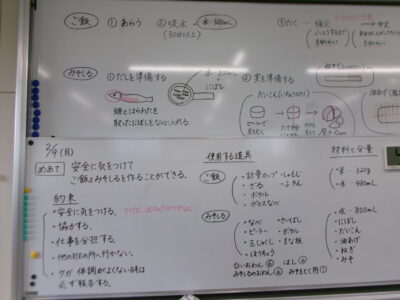 ご飯
① あらう
② 吸水
水・480mL
(30分以上)
③ たく
強火
→ 中火
みそしる
① だしを準備する
水
にぼし
頭とはらわたを
取ったにぼしをなべに入れる
② 実を準備する
だいこん(いちょう切り)
ねぎ
油あげ
2/9(月)
めあて
安全に気をつけて
ご飯とみそしるを作ることができる。
約束
・安全に気をつける。
・協力する。
・仕事を分担する。
・他の班の所へ行かない。
・ケガ、体調がよくない時は
必ず報告する。
使用する道具
ご飯
・計量カップ・しゃもじ
・ざる ・ふきん
・ボウル
・ガラスなべ
みそしる
・なべ ・さいばし
・ピーラー ・ボウル
・玉じゃくし・まな板
・ほうちょう
白いおわん⑥ はし⑥
みそしるのおわん⑥
材料と分量
・米・320g
・水・480mL
・水・800mL
・にぼし
・だいこん
・油あげ
・ねぎ
・みそ